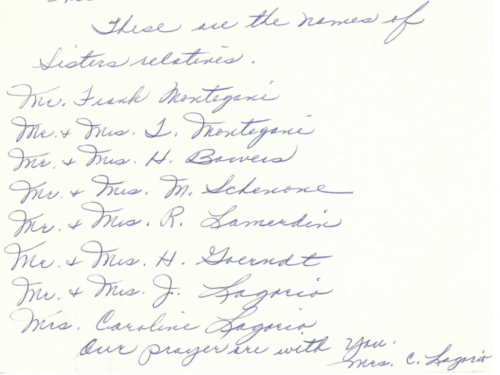 These are the names of
Sisters relatives.
Mr. Frank Montegani
Mr. & Mrs. L. Montegani
Mr. & Mrs. H. Bowers
Mr. & Mrs. M. Schenone
Mr. & Mrs. R. Lamerdin
Mr. & Mrs. H. Goerndt
Mr. & Mrs. J. Lagorio
Mrs. Caroline Lagorio
Our prayer are with You.
Mrs. C. Lagorio